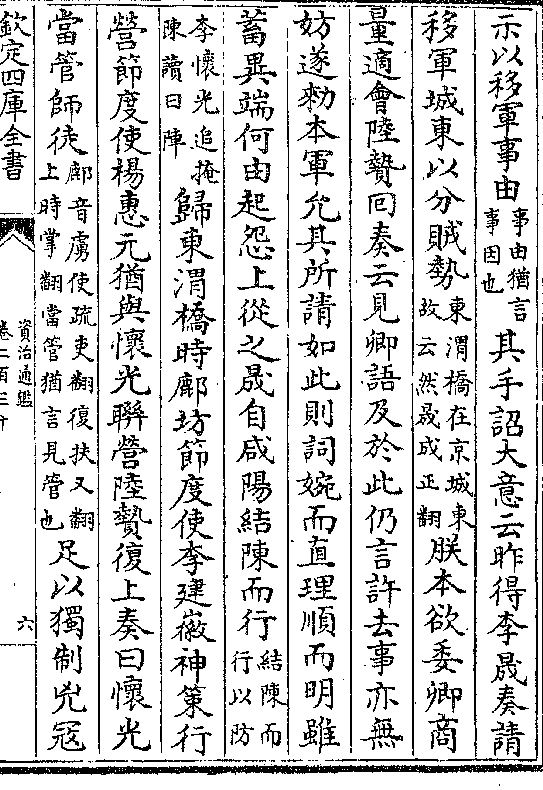 示以移軍事由事由猶言事因也其手詔大意云昨得李晟奏請
移軍城東以分賊勢東渭橋在京城東故云然晟成正翻朕本欲委卿商
量適會陸贄回奏云見卿語及於此仍言許去事亦無
妨遂勑本軍允其所請如此則詞婉而直理順而明雖
蓄異端何由起怨上從之晟自咸陽結陳而行結陳而行以防
李懷光追掩陳讀曰陣歸東渭橋時鄜坊節度使李建徽神策行
營節度使楊惠元猶與懷光聯營陸贄復上奏曰懷光
當管師徒鄜音虜使疏吏翻復扶又翻上時掌翻當管猶言見管也足以獨制兇寇
欽定四庫全書
資治通鑑
卷二百三十
六